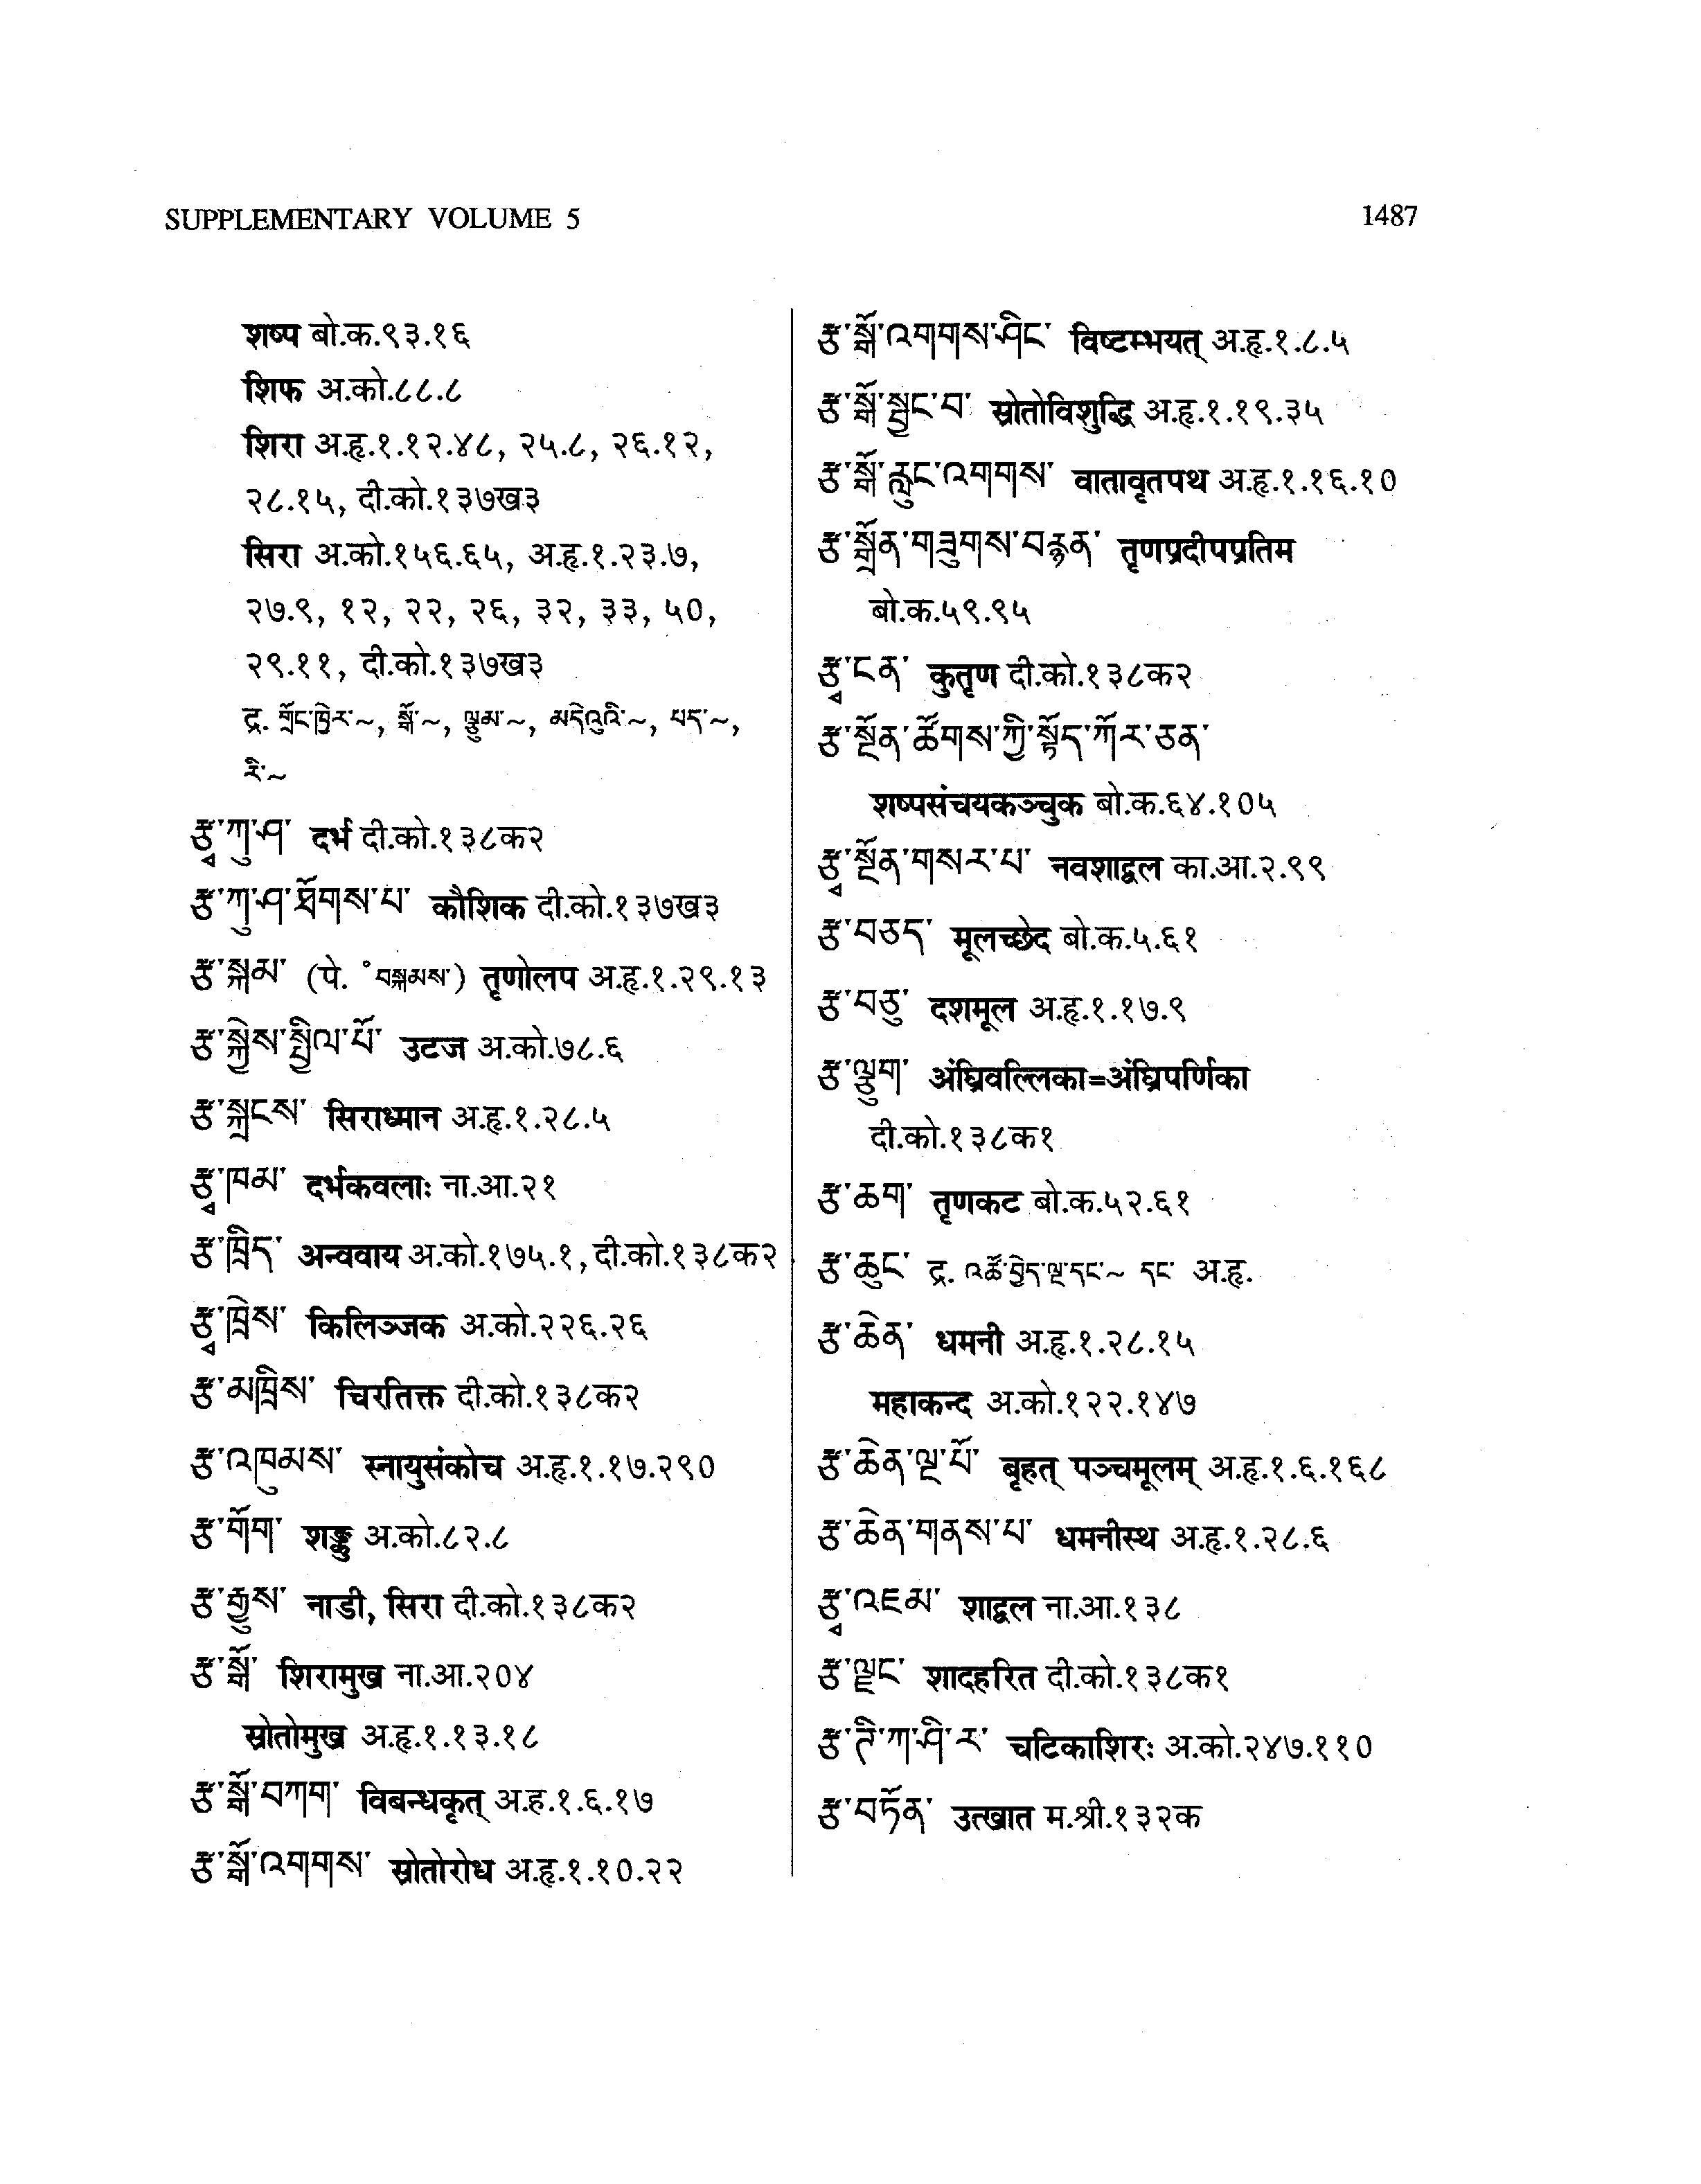 SUPPLEMENTARY VOLUME 5
1487
शष्प बो.क.९३.१६
शिफ अ.को.८८.८
शिरा अ.हृ.१.१२.४८, २५.८, २६.१२,
२८.१५, दी.को.१३७ख३
सिरा अ.को.१५६.६५, अ.हृ.१.२३.७,
२७.९, १२, २२, २६, ३२, ३३, ५०,
२९.११, दी.को.१३७ख३
द्र. གྲོང་ཁྱེར་~, སྒོ་~, ལྕུམ་~, མདེའུའི་~, པད་~,
རི་~
རྩྭ་ཀུ་ཤ་ दर्भ दी.को.१३८क२
རྩ་ཀུ་ཤ་ཐོགས་པ་ कौशिक दी.को.१३७ख३
རྩ་སྐམ་ (पे. ॰བསྐམས་) तृणोलप अ.हृ.१.२९.१३
རྩ་སྐྱེས་སྤྱིལ་པོ་ उटज अ.को.७८.६
རྩ་སྐྲངས་ सिराध्मान अ.हृ.१.२८.५
རྩྭ་ཁམ་ दर्भकवलाः ना.आ.२१
རྩ་ཁྲིད་ अन्ववाय अ.को.१७५.१, दी.को.१३८क२
རྩྭ་ཁྲེས་ किलिञ्जक अ.को.२२६.२६
རྩ་མཁྲིས་ चिरतिक्त दी.को.१३८क२
རྩ་འཁུམས་ स्नायुसंकोच अ.हृ.१.१७.२९०
རྩ་གོག་ शङ्कु अ.को.८२.८
རྩ་རྒྱུས་ नाडी, सिरा दी.को.१३८क२
རྩ་སྒོ་ शिरामुख ना.आ.२०४
स्रोतोमुख अ.हृ.१.१३.१८
རྩ་སྒོ་བཀག་ विबन्धकृत् अ.ह.१.६.१७
རྩ་སྒོ་འགགས་ स्रोतोरोध अ.हृ.१.१०.२२
རྩ་སྒོ་འགགས་ཤིང་ विष्टम्भयत् अ.हृ.१.८.५
རྩ་སྒོ་སྦྱང་བ་ स्रोतोविशुद्धि अ.हृ.१.१९.३५
རྩ་སྒོ་རླུང་འགགས་ वातावृतपथ अ.हृ.१.१६.१०
རྩ་སྒྲོན་གཟུགས་བརྙན་ तृणप्रदीपप्रतिम
बो.क.५९.९५
རྩྭ་ངན་ कुतृण दी.को.१३८क२
རྩ་སྔོན་ཚོགས་ཀྱི་སྟོད་ཀོར་ཅན་
शष्पसंचयकञ्चुक बो.क.६४.१०५
རྩྭ་སྔོན་གསར་པ་ नवशाद्वल का.आ.२.९९
རྩ་བཅད་ मूलच्छेद बो.क.५.६१
རྩ་བཅུ་ दशमूल अ.हृ.१.१७.९
རྩ་ལྕུག་ अंघ्रिवल्लिका=अंघ्रिपर्णिका
दी.को.१३८क१
རྩ་ཆག་ तृणकट बो.क.५२.६१
རྩ་ཆུང་ द्र. འཚོ་བྱེད་ལྔ་དང་~ དང་ अ.हृ.
རྩ་ཆེན་ धमनी अ.हृ.१.२८.१५
महाकन्द अ.को.१२२.१४७
རྩ་ཆེན་ལྔ་པོ་ बृहत् पञ्चमूलम् अ.हृ.१.६.१६८
རྩ་ཆེན་གནས་པ་ धमनीस्थ अ.हृ.१.२८.६
རྩྭ་འཇམ་ शाद्वल ना.आ.१३८
རྩ་ལྗང་ शादहरित दी.को.१३८क१
རྩ་ཊི་ཀ་ཤི་ར་ चटिकाशिरः अ.को.२४७.११०
རྩ་བཏོན་ उत्खात म.श्री.१३२क